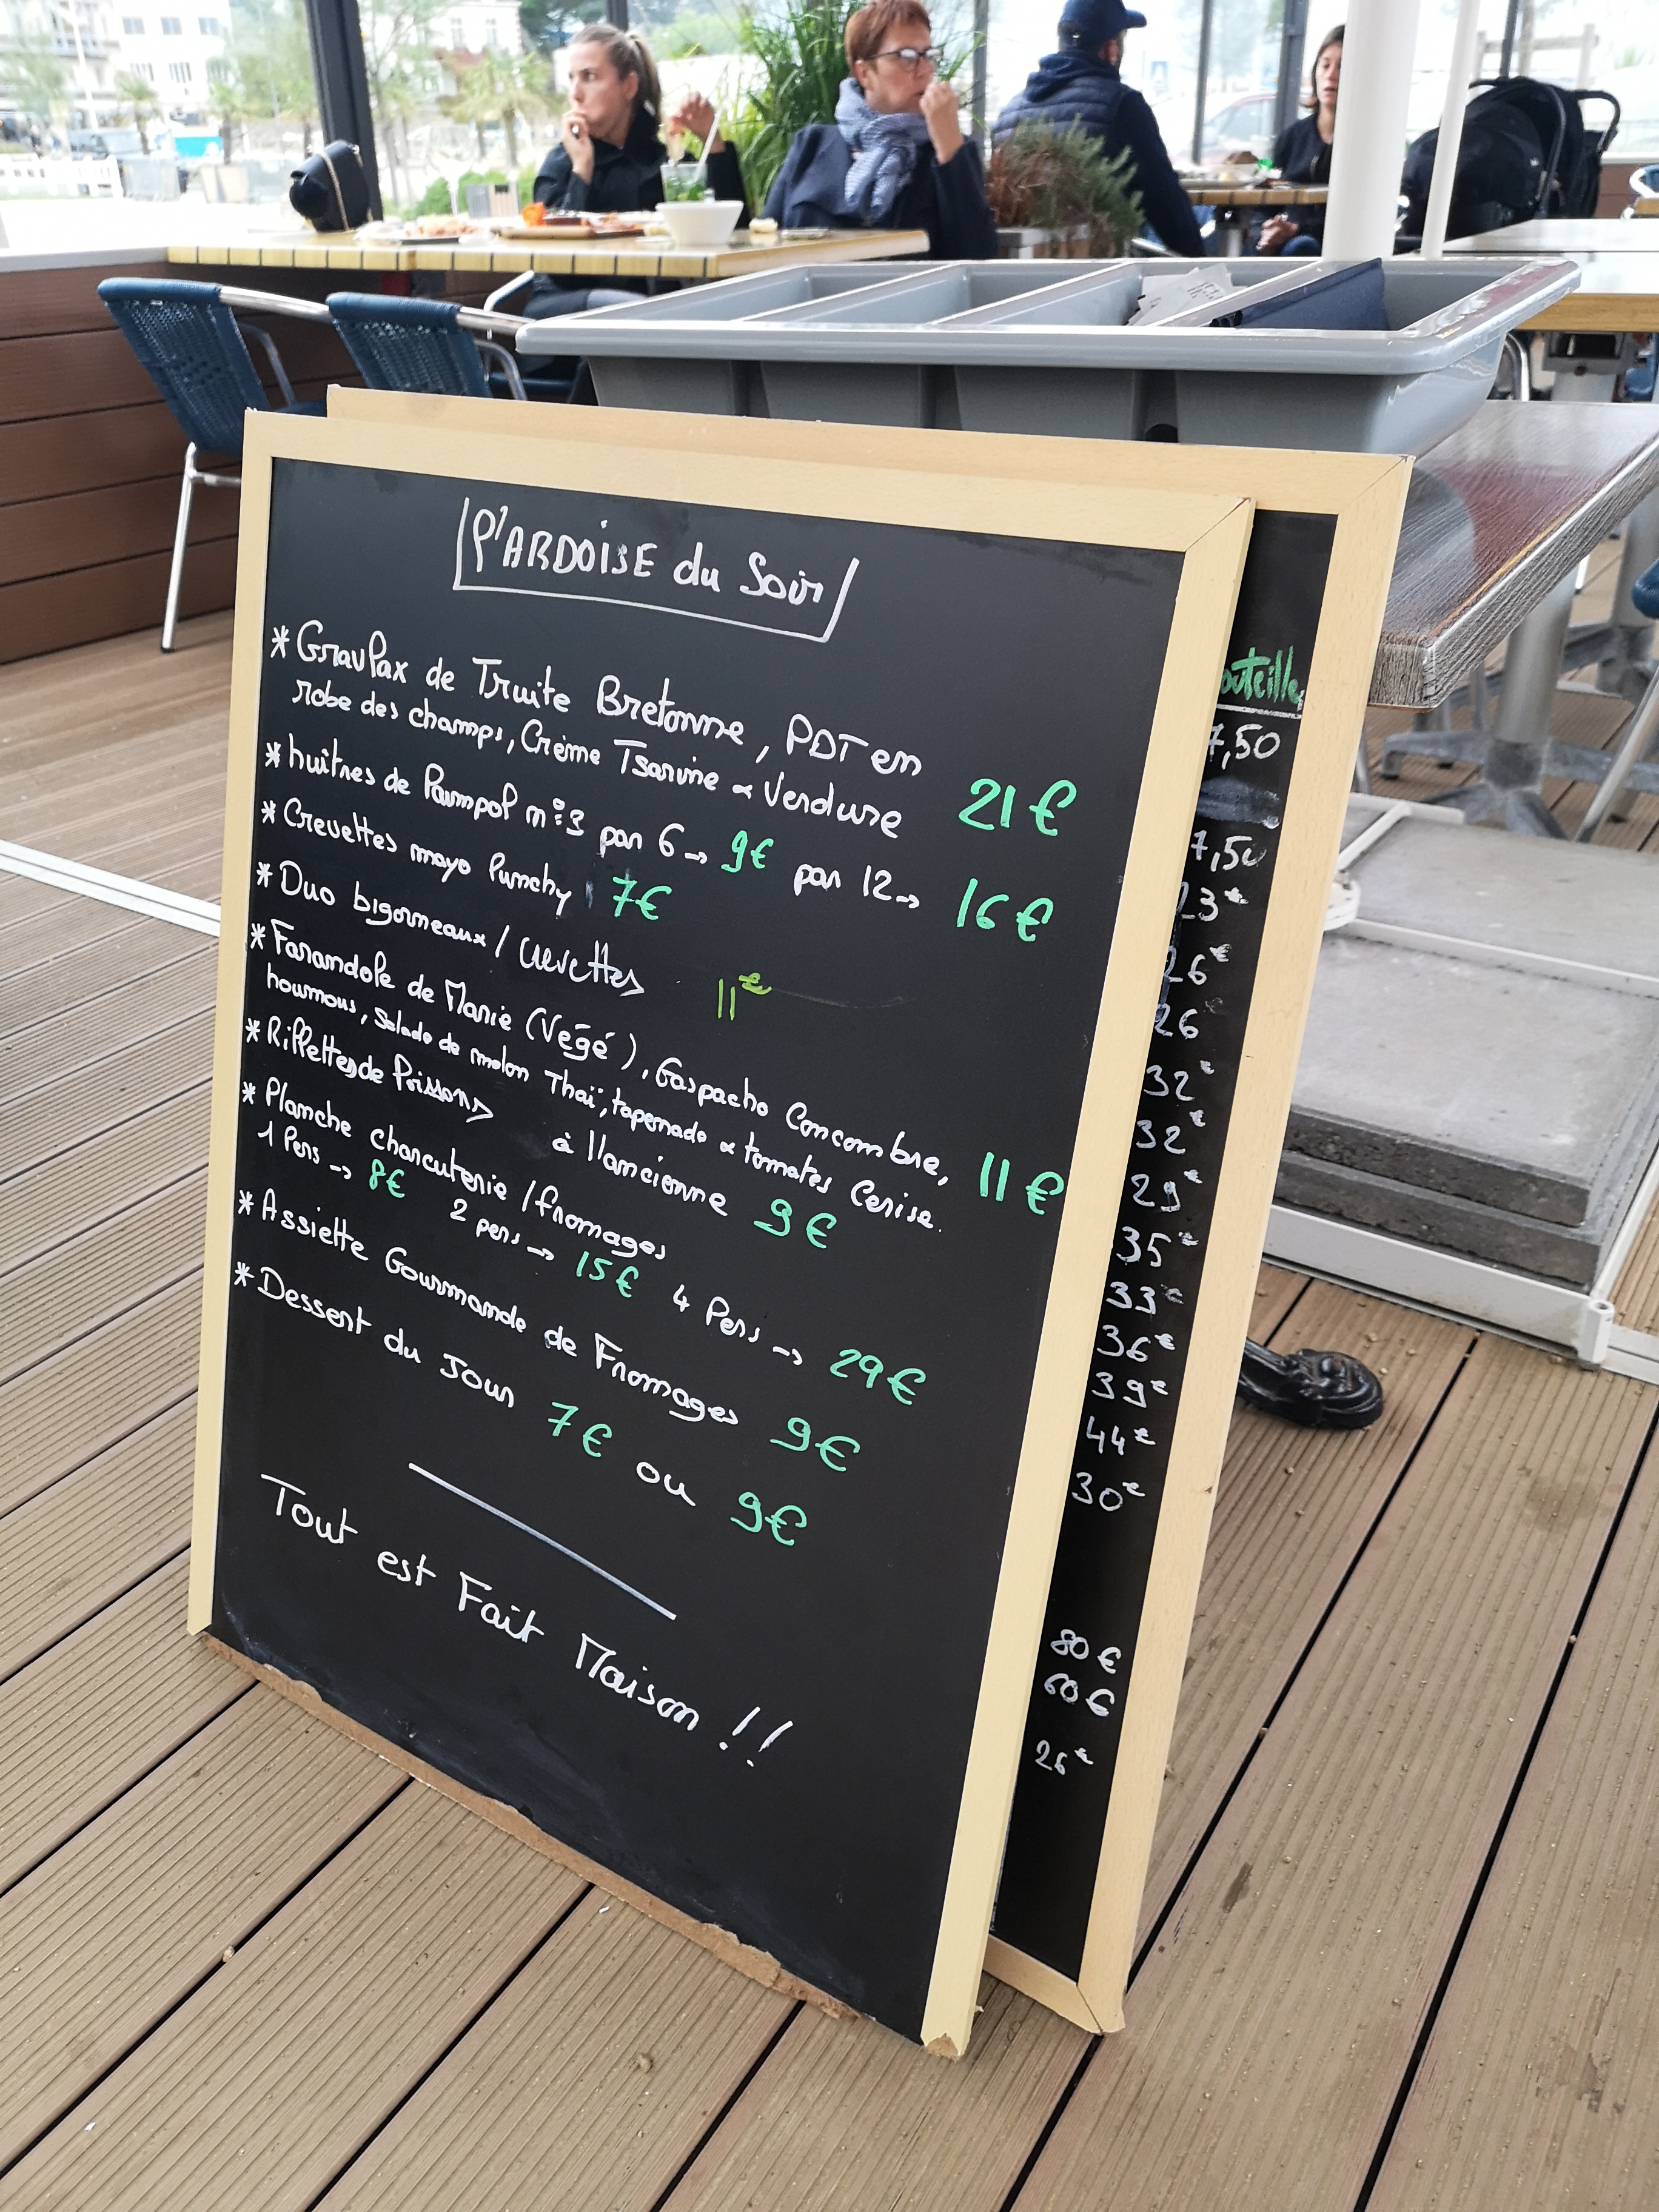 l'ARDOISE du Soir
* Gravlax de Truite Bretonne, PDT en
robe des champs, Crème Tsarine & Verdure 21€
* huitres de Paimpol n°3 par 6 → 9€ par 12 → 16€
* Crevettes mayo Punchy 7€
* Duo bigorneaux / Crevettes 11€
* Farandole de Marie (Végé), Gaspacho Concombre,
houmous, Salade de melon Thaï, tapenade & tomates Cerise. 11€
* Rillettes de Poissons à l'ancienne 9€
* Planche charcuterie / fromages
1 Pers → 8€ 2 pers → 15€ 4 Pers → 29€
* Assiette Gourmande de Fromages 9€
* Dessert du Jour 7€ ou 9€
Tout est Fait Maison !!
outeille
7,50
7,50
23€
26€
26
32€
32€
29€
35€
33€
36€
39€
44€
30€
80€
60€
26€